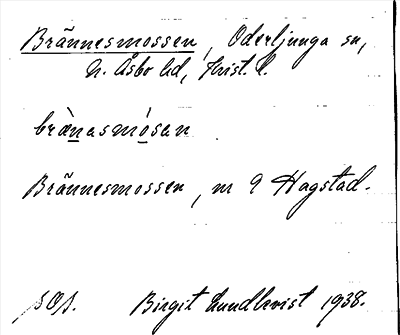 Brännesmossen, Oderljunga sn,
N. Åsbo hd, Krist. l.
brä̀nasmósan
Brännesmossen, nr 9 Hagstad.
Birgit Lundkvist 1938.